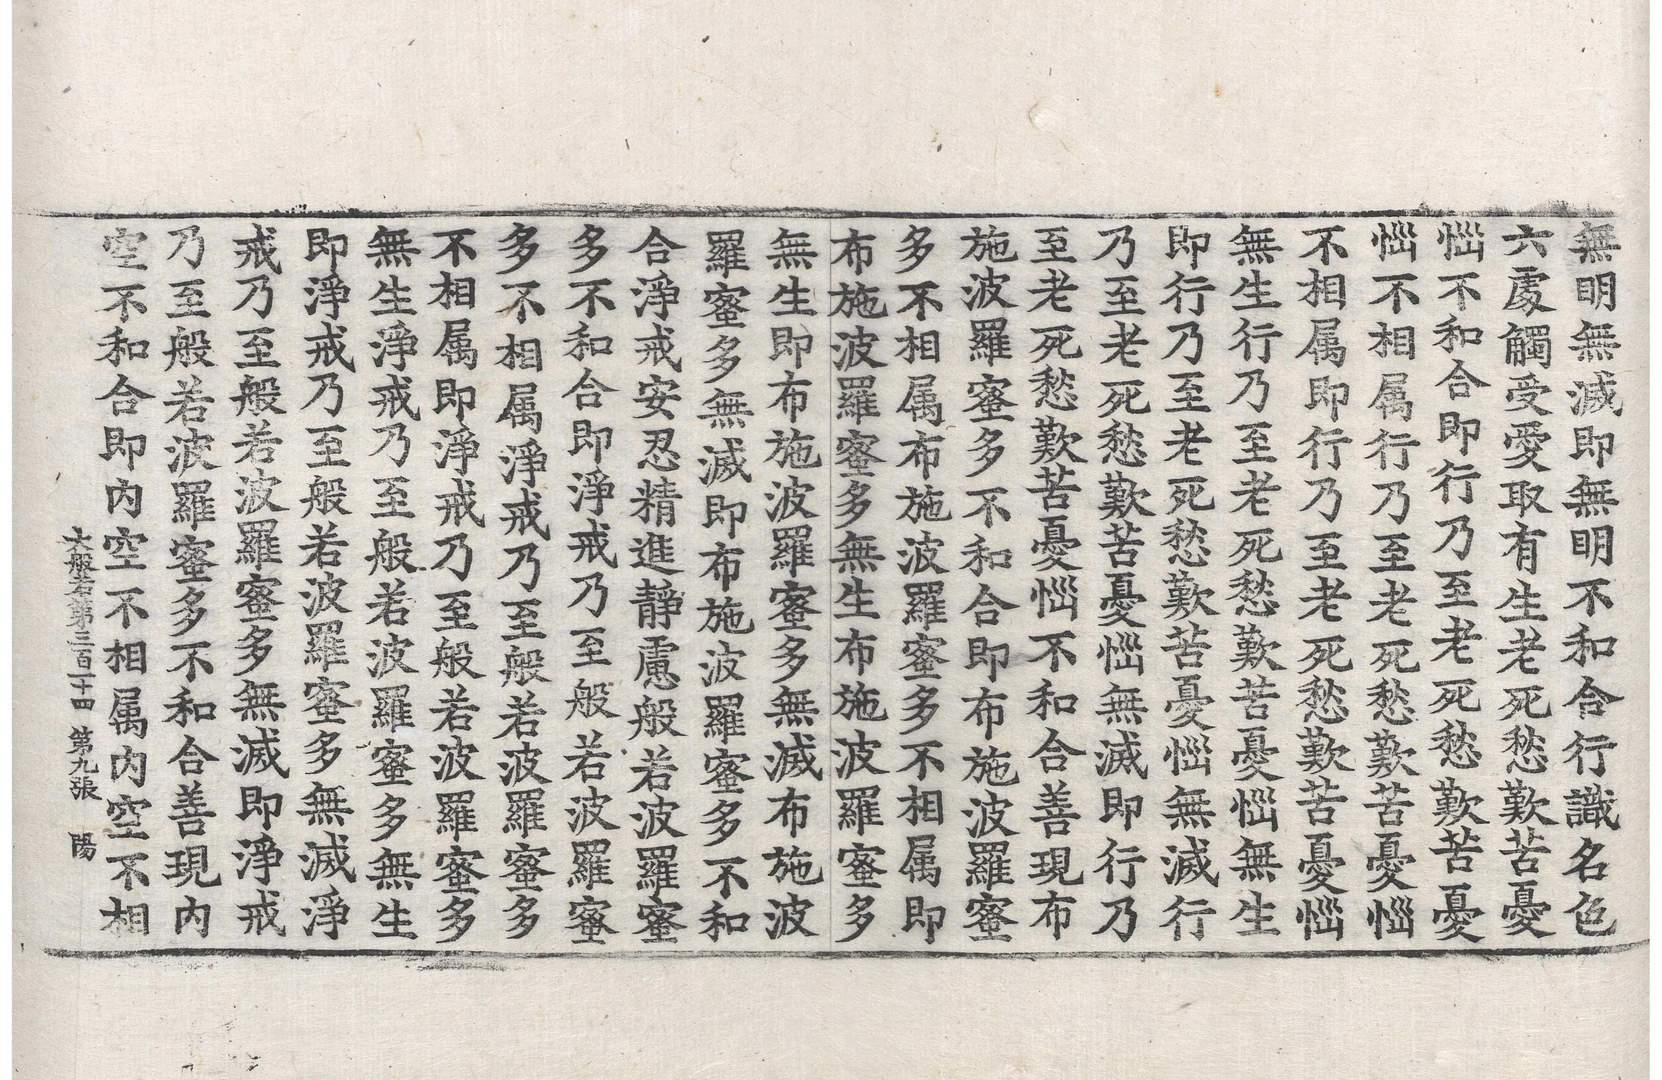 無明無滅即無明不和合行識名色
六處觸受愛取有生老死愁歎苦憂
惱不和合即行乃至老死愁歎苦憂
惱不相属行乃至老死愁歎苦憂惱
不相属即行乃至老死愁歎苦憂惱
無生行乃至老死愁歎苦憂惱無生
即行乃至老死愁歎苦憂惱無滅行
乃至老死愁歎苦憂惱無滅即行乃
至老死愁歎苦憂惱不和合善現布
施波羅蜜多不和合即布施波羅蜜
多不相属布施波羅蜜多不相属即
布施波羅蜜多無生布施波羅蜜多
無生即布施波羅蜜多無滅布施波
羅蜜多無滅即布施波羅蜜多不和
合淨戒安忍精進靜慮般若波羅蜜
多不和合即淨戒乃至般若波羅蜜
多不相属淨戒乃至般若波羅蜜多
不相属即淨戒乃至般若波羅蜜多
無生淨戒乃至般若波羅蜜多無生
即淨戒乃至般若波羅蜜多無滅淨
戒乃至般若波羅蜜多無滅即淨戒
乃至般若波羅蜜多不和合善現内
空不和合即内空不相属内空不相
大般若第三百一十四 第九張 陽